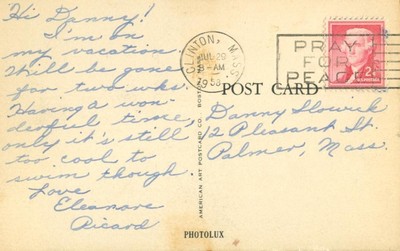 Hi Danny!
I'm on
my vacation.
Will be gone
for two wks.
Having a won-
derful time,
only it's still
too cool to
swim though.
Love
Eleanore
Ricard
CLINTON, MASS.
JUL 29
AM
PRAY
FOR
PEACE
2¢
POST CARD
Danny Slowick
12 Pleasant St.
Palmer, Mass.
AMERICAN ART POSTCARD CO. BOSTON
PHOTOLUX